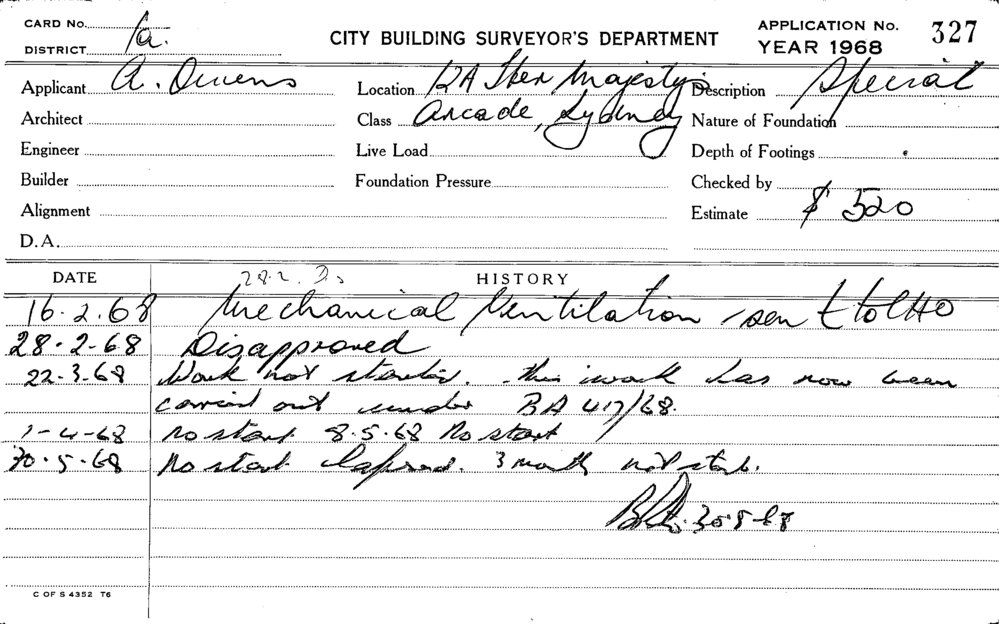 CARD No. 1a.
DISTRICT
CITY BUILDING SURVEYOR'S DEPARTMENT
APPLICATION No. 327
YEAR 1968
Applicant A. Owens
Location 12A Her Majesty's
Description Special
Architect
Class Arcade, Sydney
Nature of Foundation
Engineer
Live Load
Depth of Footings
Builder
Foundation Pressure
Checked by
Alignment
Estimate $ 520
D.A.
DATE
28.2. D.
HISTORY
16.2.68 Mechanical Ventilation sent to CHO
28.2.68 Disapproved
22.3.68 Work not started. this work has now been
carried out under BA 417/68.
1-4-68 no start 8.5.68 No start
30.5.68 No start lapsed. 3 month not start.
30.5.68
C OF S 4352 T6